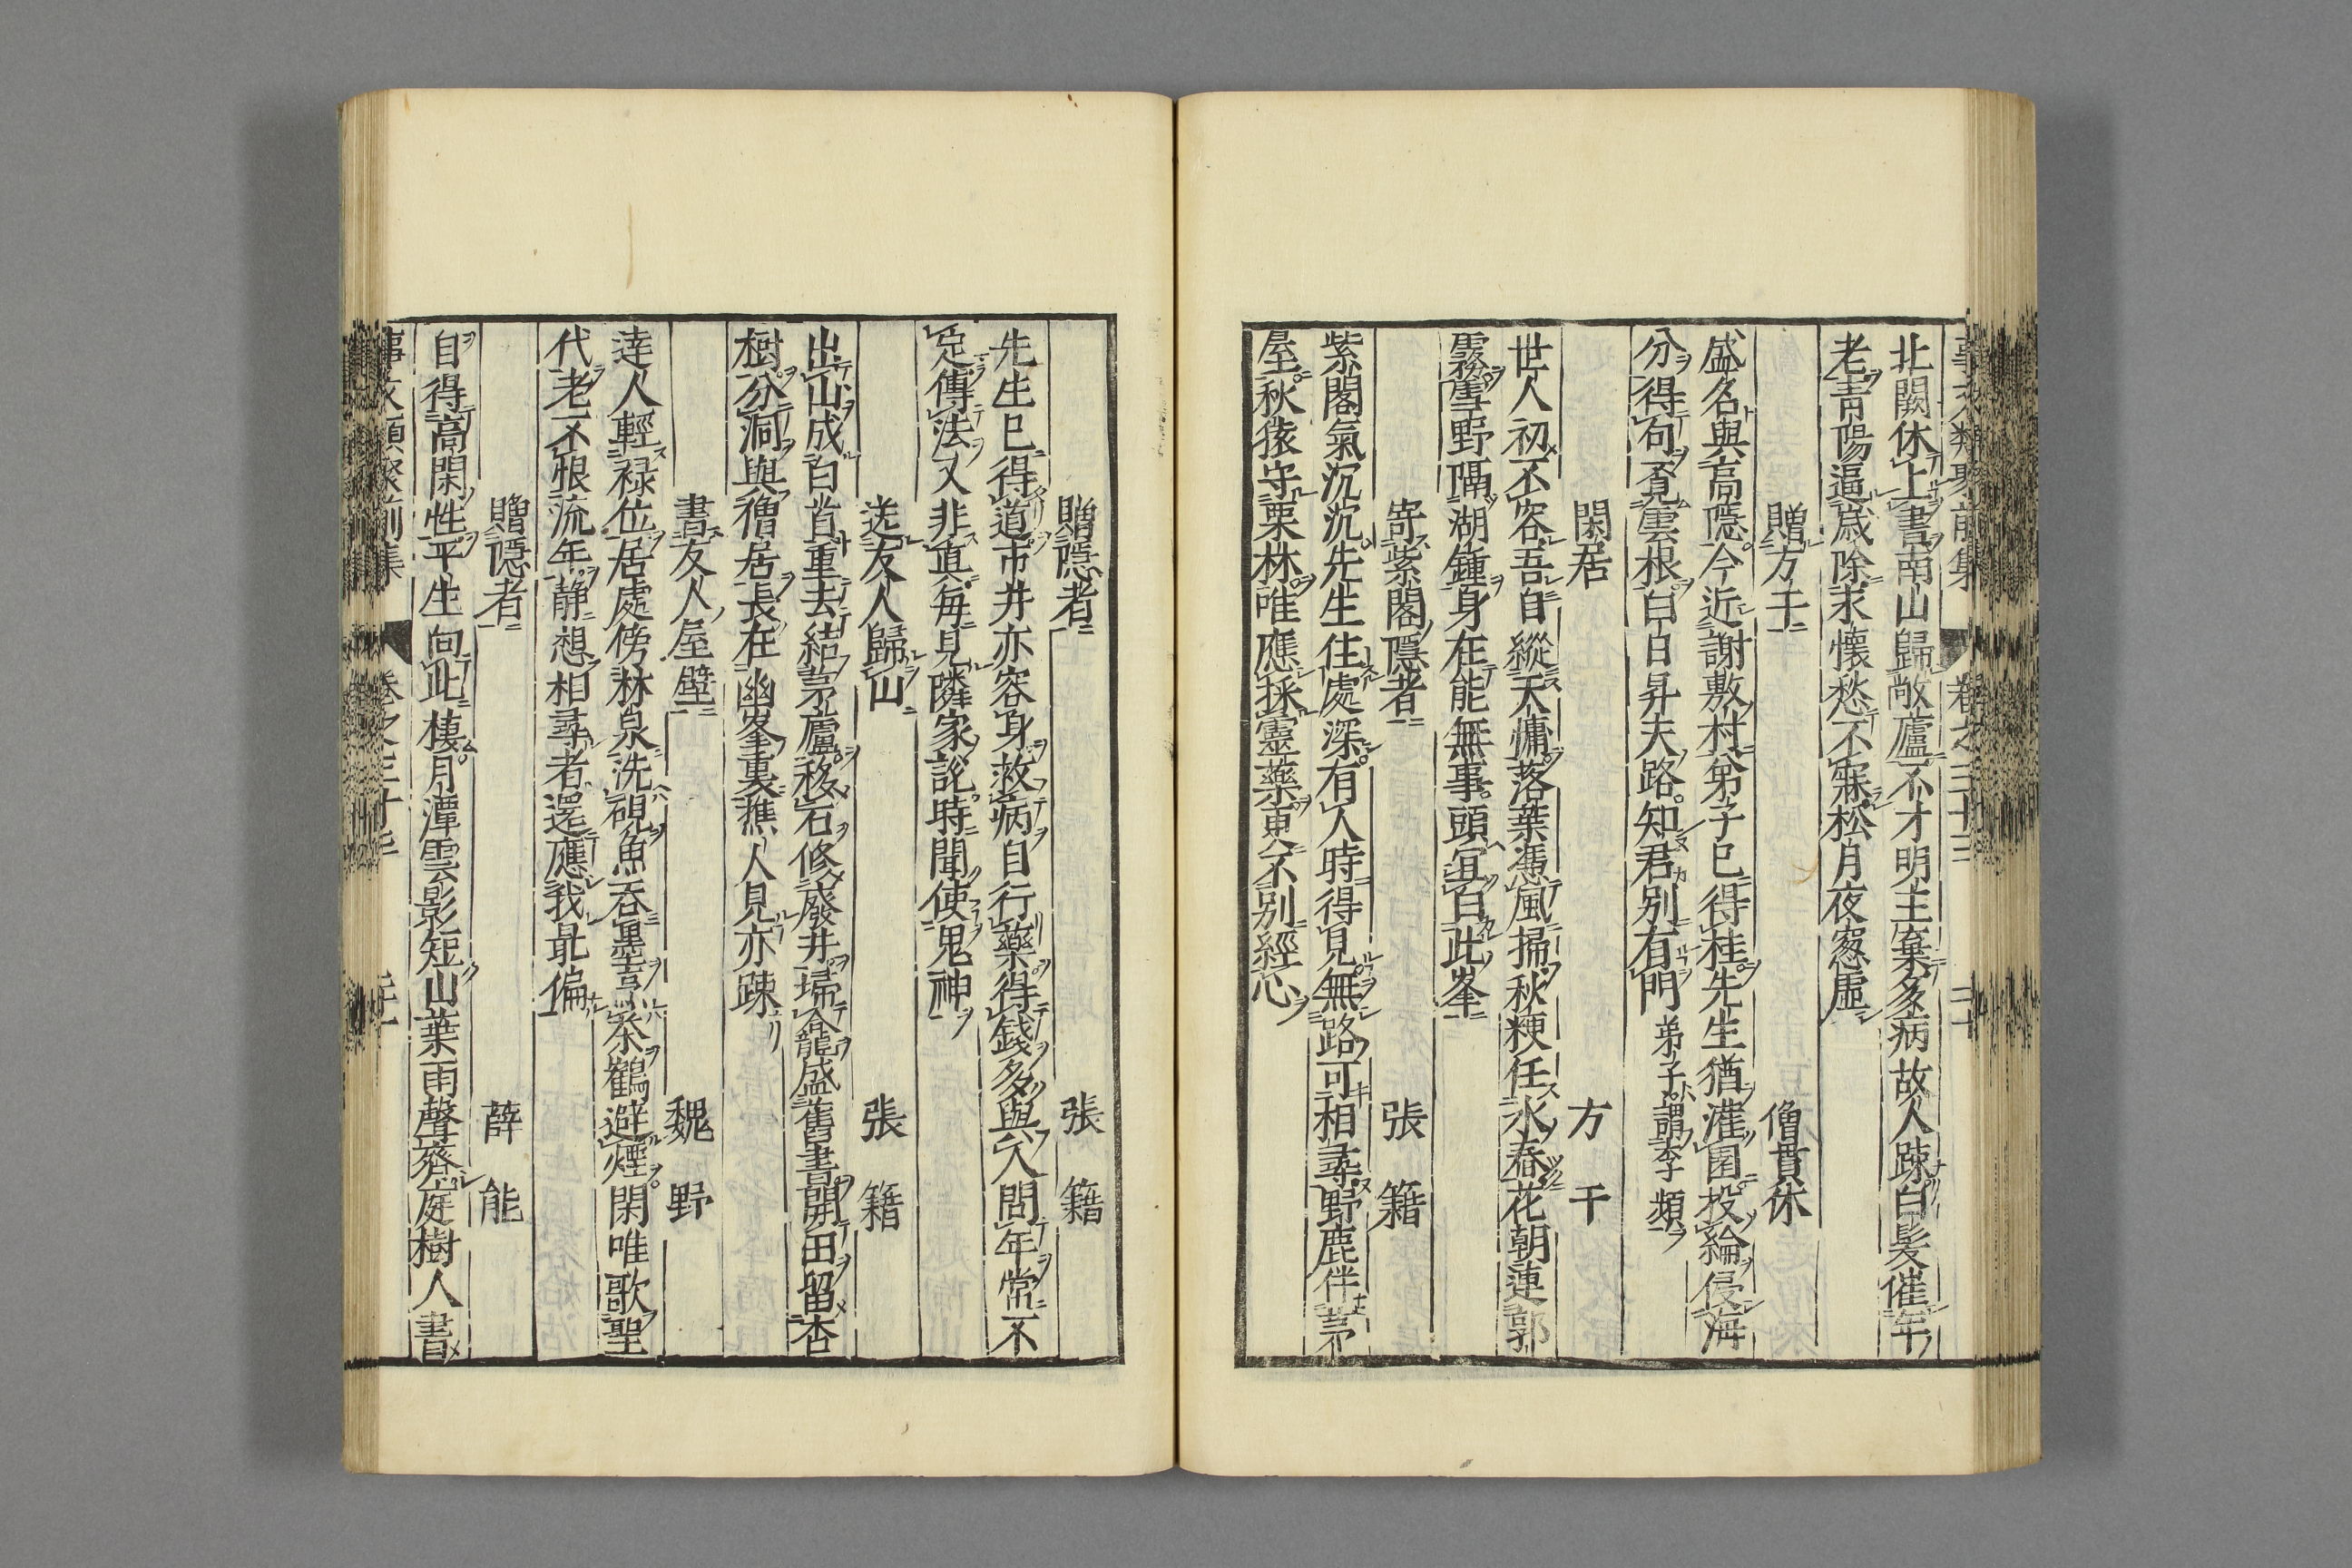 北闕休上書南山歸敝廬不才明主棄多病故人踈白髪催年
老青陽逼歳除永懷愁不寐松月夜窓虚
贈方干 僧貫休
盛名與高隠今近謝敷村弟子已得桂先生猶灌園投綸侵海
分得句覓雲根白日昇天路知君別有門 弟子謂李頻
閑居 方干
世人初不容吾自縱天慵落葉憑風掃秋粳任水舂花朝連郭
霧雪野隔湖鍾身在能無事頭冝白此峯
寄紫閣隠者 張籍
紫閣氣沉沉先生住處深有人時得見無路可相尋野鹿伴茅
屋秋猿守栗林唯應採靈藥更不別經心
贈隠者 張籍
先生已得道市井亦容身救病自行藥得錢多與人問年常不
定傳法又非真毎見隣家說時聞使鬼神
送友人歸山 張籍
出山成白首重去結茅廬移石修廢井掃龕盛舊書開田留杏
樹分洞與僧居長在幽峯裏樵人見亦踈
書友人屋壁 魏野
達人輕禄位居處傍林泉洗硯魚吞墨烹茶鶴避煙閑唯歌聖
代老不恨流年静想相尋者還應我最偏
贈隠者 薛能
自得高閑性平生向此棲月潭雲影短山葉雨聲齊庭樹人書